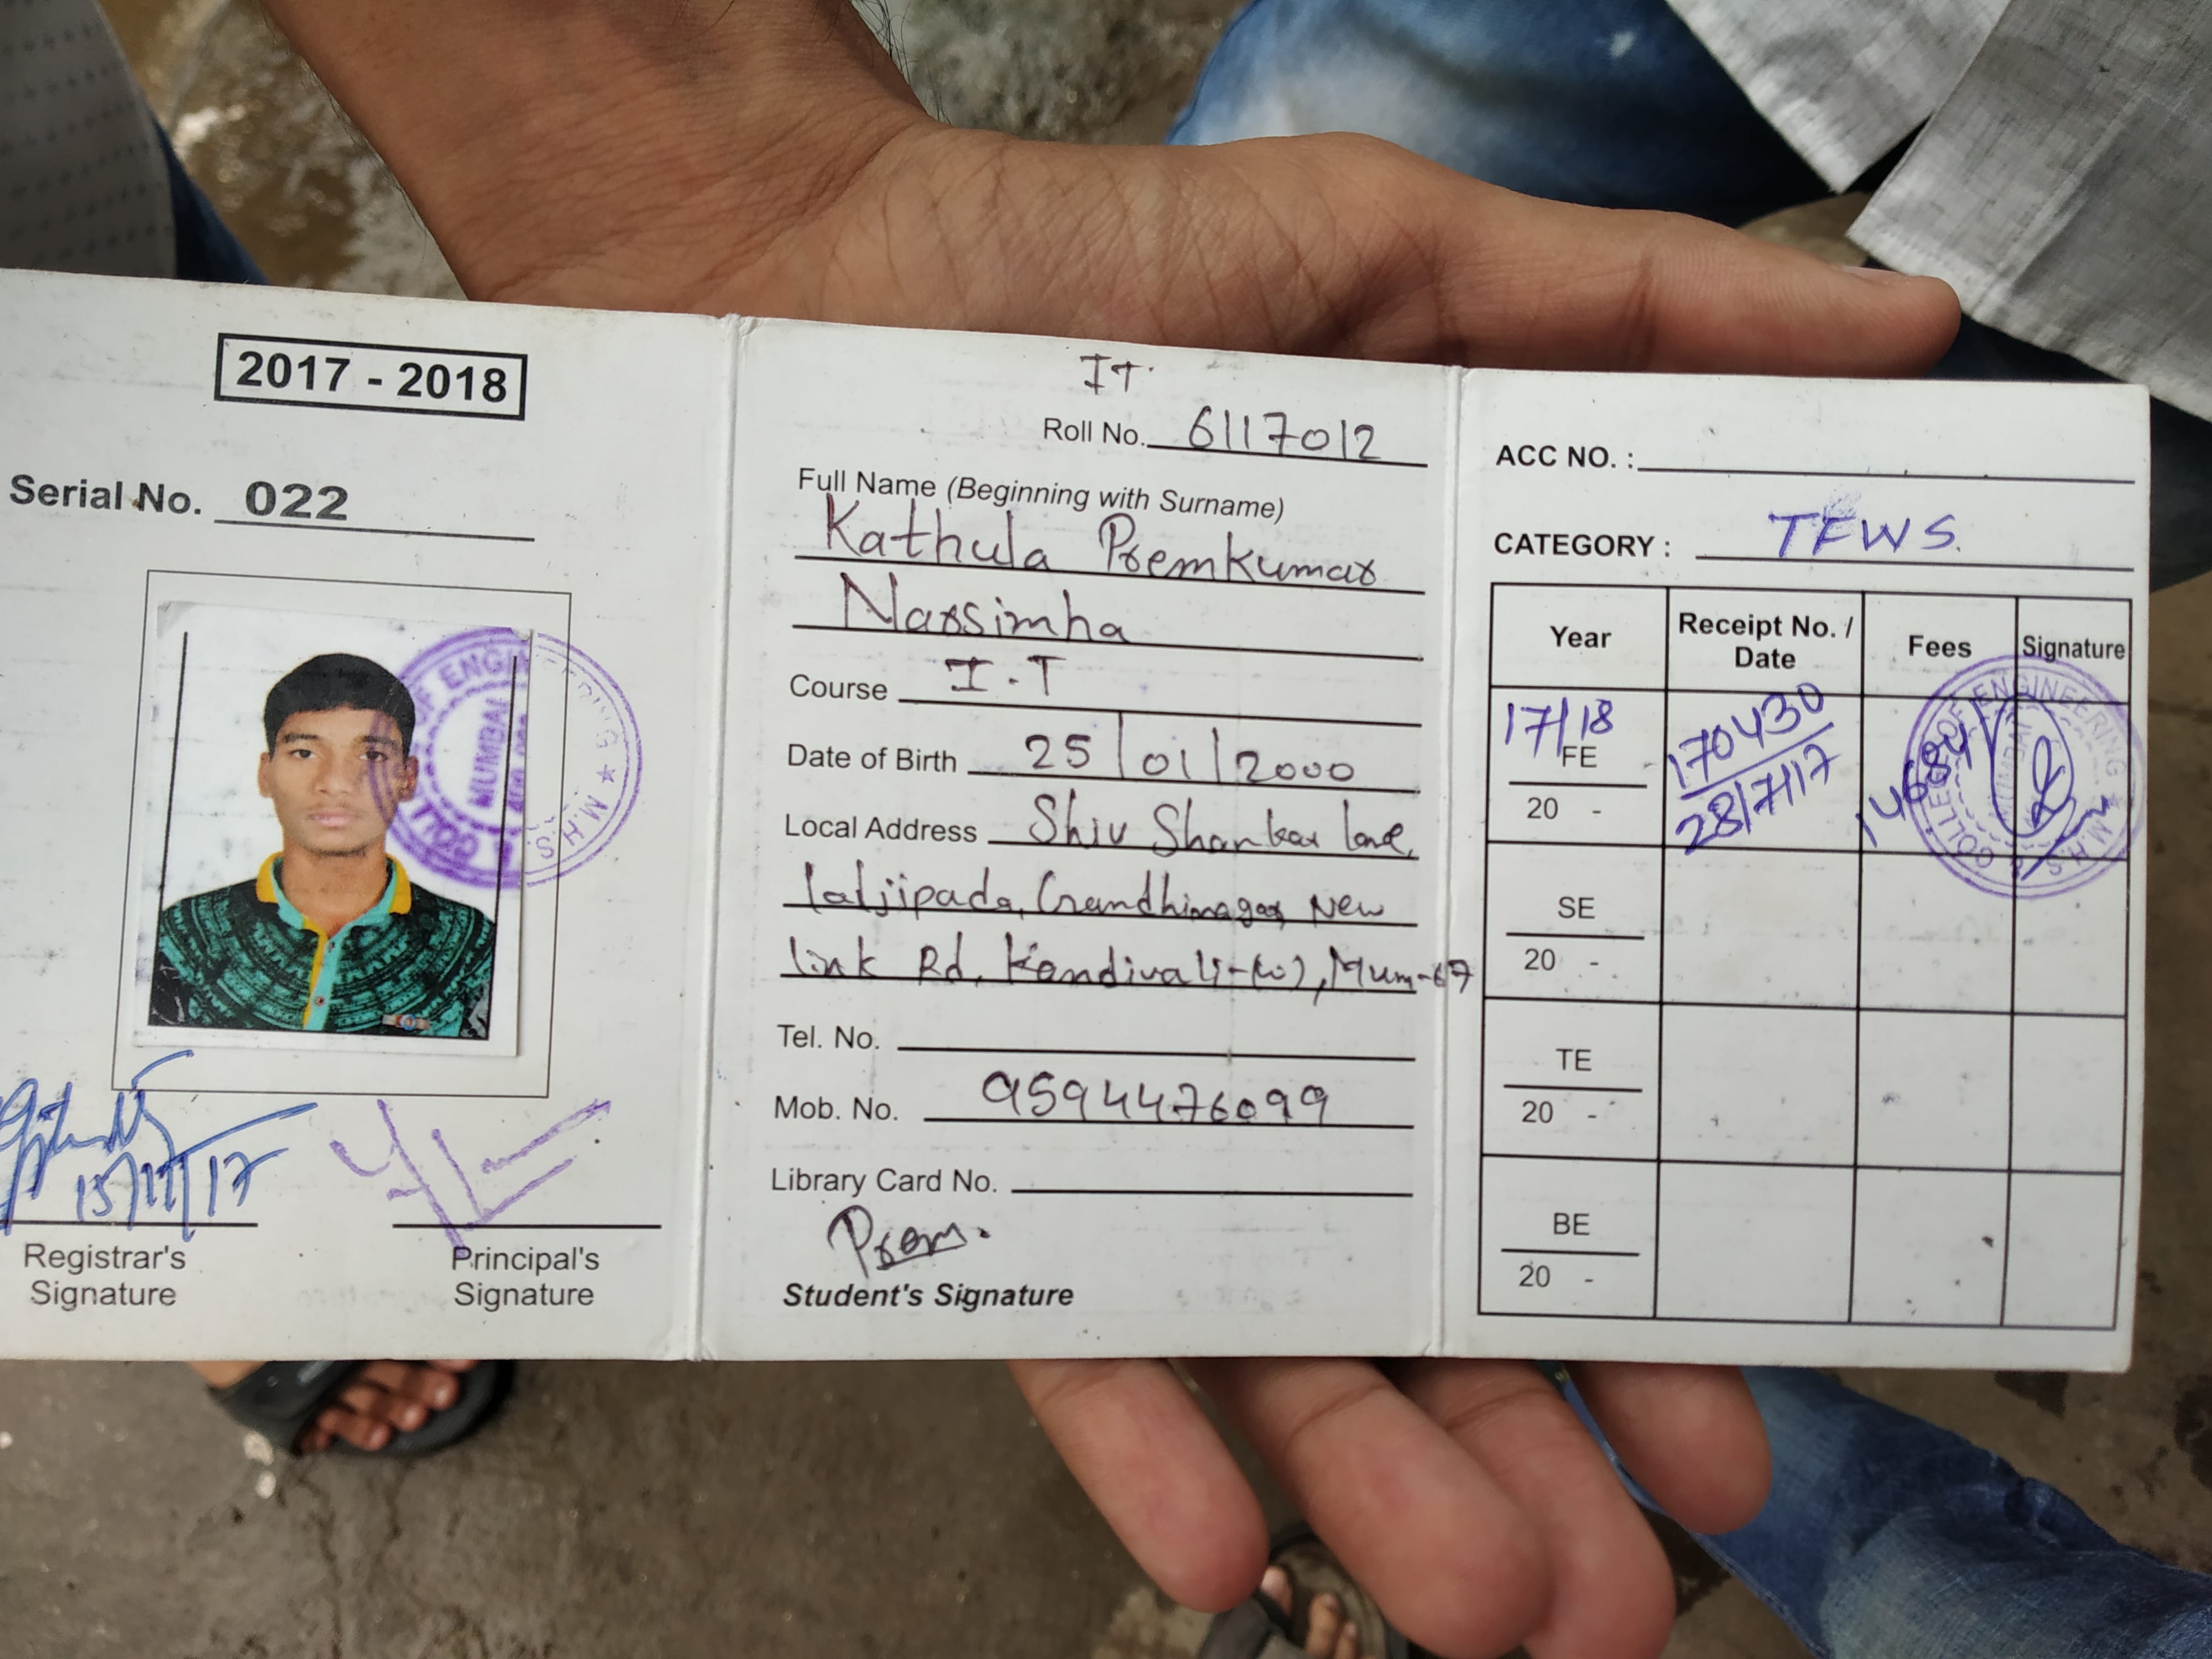 2017 - 2018
Serial No. 022
OF ENGINEERING ★ M.H.S.
MUMBAI
Registrar's
Signature
15/11/17
Principal's
Signature
IT.
Roll No. 6117012
Full Name (Beginning with Surname)
Kathula Premkumar
Narsimha
Course I.T
Date of Birth 25/01/2000
Local Address Shiv Shankar lane,
laljipada, Gandhinagar, New
link Rd, Kandivali-(w), Mum-67
Tel. No.
Mob. No. 9594476099
Library Card No.
Prem.
Student's Signature
ACC NO. :
CATEGORY : TFWS.
Year Receipt No. / Date Fees Signature
17/18 FE 20 - 170430 28/7/17 14684/
COLLEGE OF ENGINEERING ★ M.H.S.
MUMBAI
SE
20 -
TE
20 -
BE
20 -